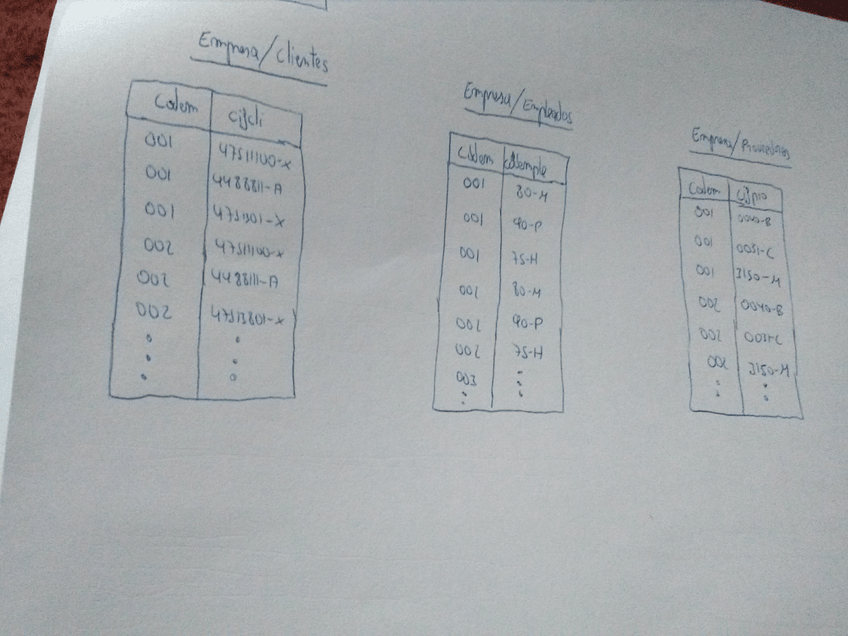 Empresa/Clientes
Codem cifcli
001 47511100-X
001 4488811-A
001
002 47511100-X
002 4488111-A
002 47513801-X
Empresa/Empleados
Codem
001 80-M
001 90-P
001 75-H
001 80-M
002 90-P
002 75-H
003
Empresa/Proveedores
Codem cifpro
001 0040-B
001 0051-C
001 3150-M
002 0040-B
002 0051-C
002 3150-M